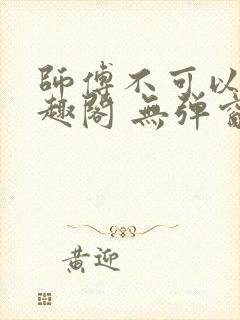 師傅不可以
趣閣 無彈
黃迎